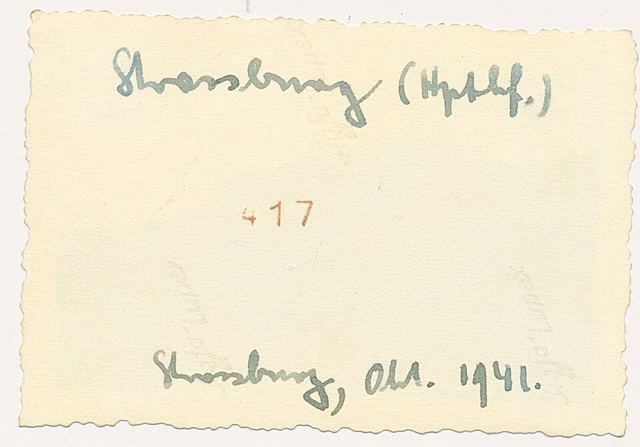 Strassburg (Hptbhf.)
417
Strassburg, Okt. 1941.